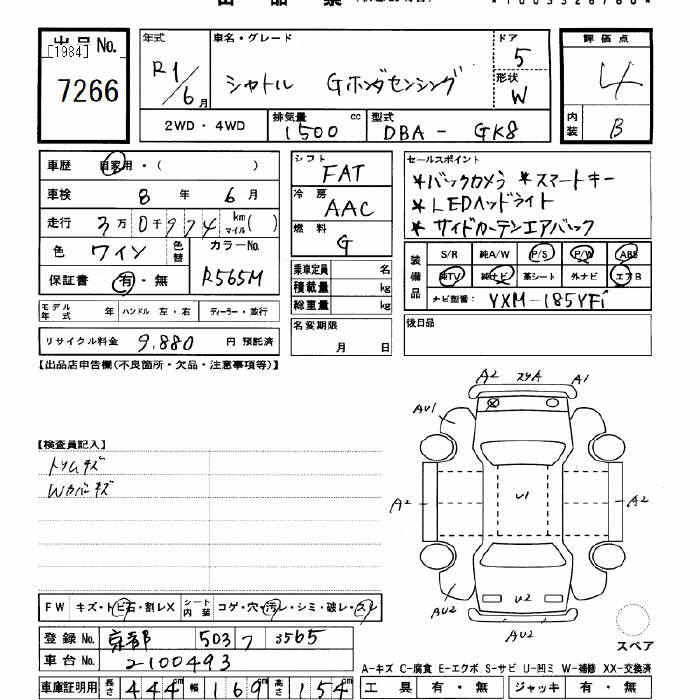 出品No.
[1984]
7266
年式
R1/6月
車名・グレード
シャトル Gホンダセンシング
ドア
5
形状
W
評価点
4
内装
B
2WD・4WD
排気量
1500 cc
型式
DBA - GK8
車歴 自家用・( )
車検 8年 6月
走行 3万0千974 km マイル( )
色 ワイン
色替
カラーNo.
R565M
保証書 有・無
シフト
FAT
冷房
AAC
燃料
G
乗車定員 名
積載量 kg
総重量 kg
名変期限
月 日
セールスポイント
*バックカメラ *スマートキー
*LEDヘッドライト
*サイドカーテンエアバック
装備品
S/R 純A/W P/S P/W ABS
純TV 純ナビ 革シート 外ナビ エアB
ナビ型番: VXM-185VFi
モデル年式 年 ハンドル 左・右 ディーラー・並行
リサイクル料金 9,880 円 預託済
後日品
【出品店申告欄(不良箇所・欠品・注意事項等)】
A2 スリA A1
AU1
A2 U1 A2
U2
AU2 AU2
AU2
【検査員記入】
トリムキズ
Wカバーキズ
FW キズ・トビ石・割レX
シート内装 コゲ・穴・汚レ・シミ・破レ・スレ
登録No. 京都 503 フ 3565
車台No. 2100493
車庫証明用 長さ 444cm 幅 169cm 高さ 154cm
スペア
A-キズ C-腐食 E-エクボ S-サビ U-凹ミ W-補修 XX-交換済
工具 有・無 ジャッキ 有・無